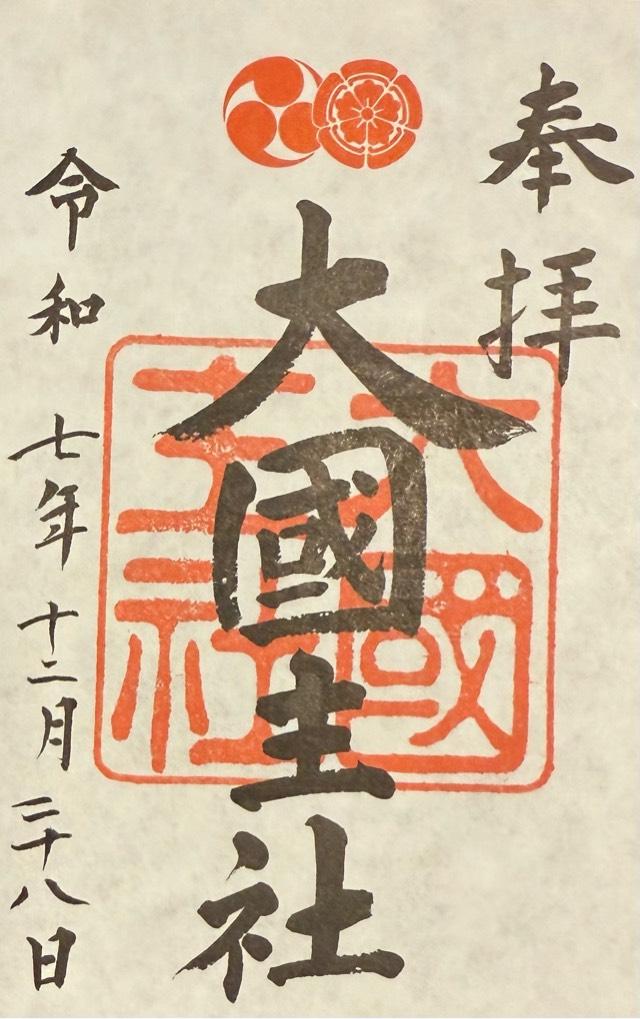 奉拝
大國主社
大國主社
令和七年十二月二十八日